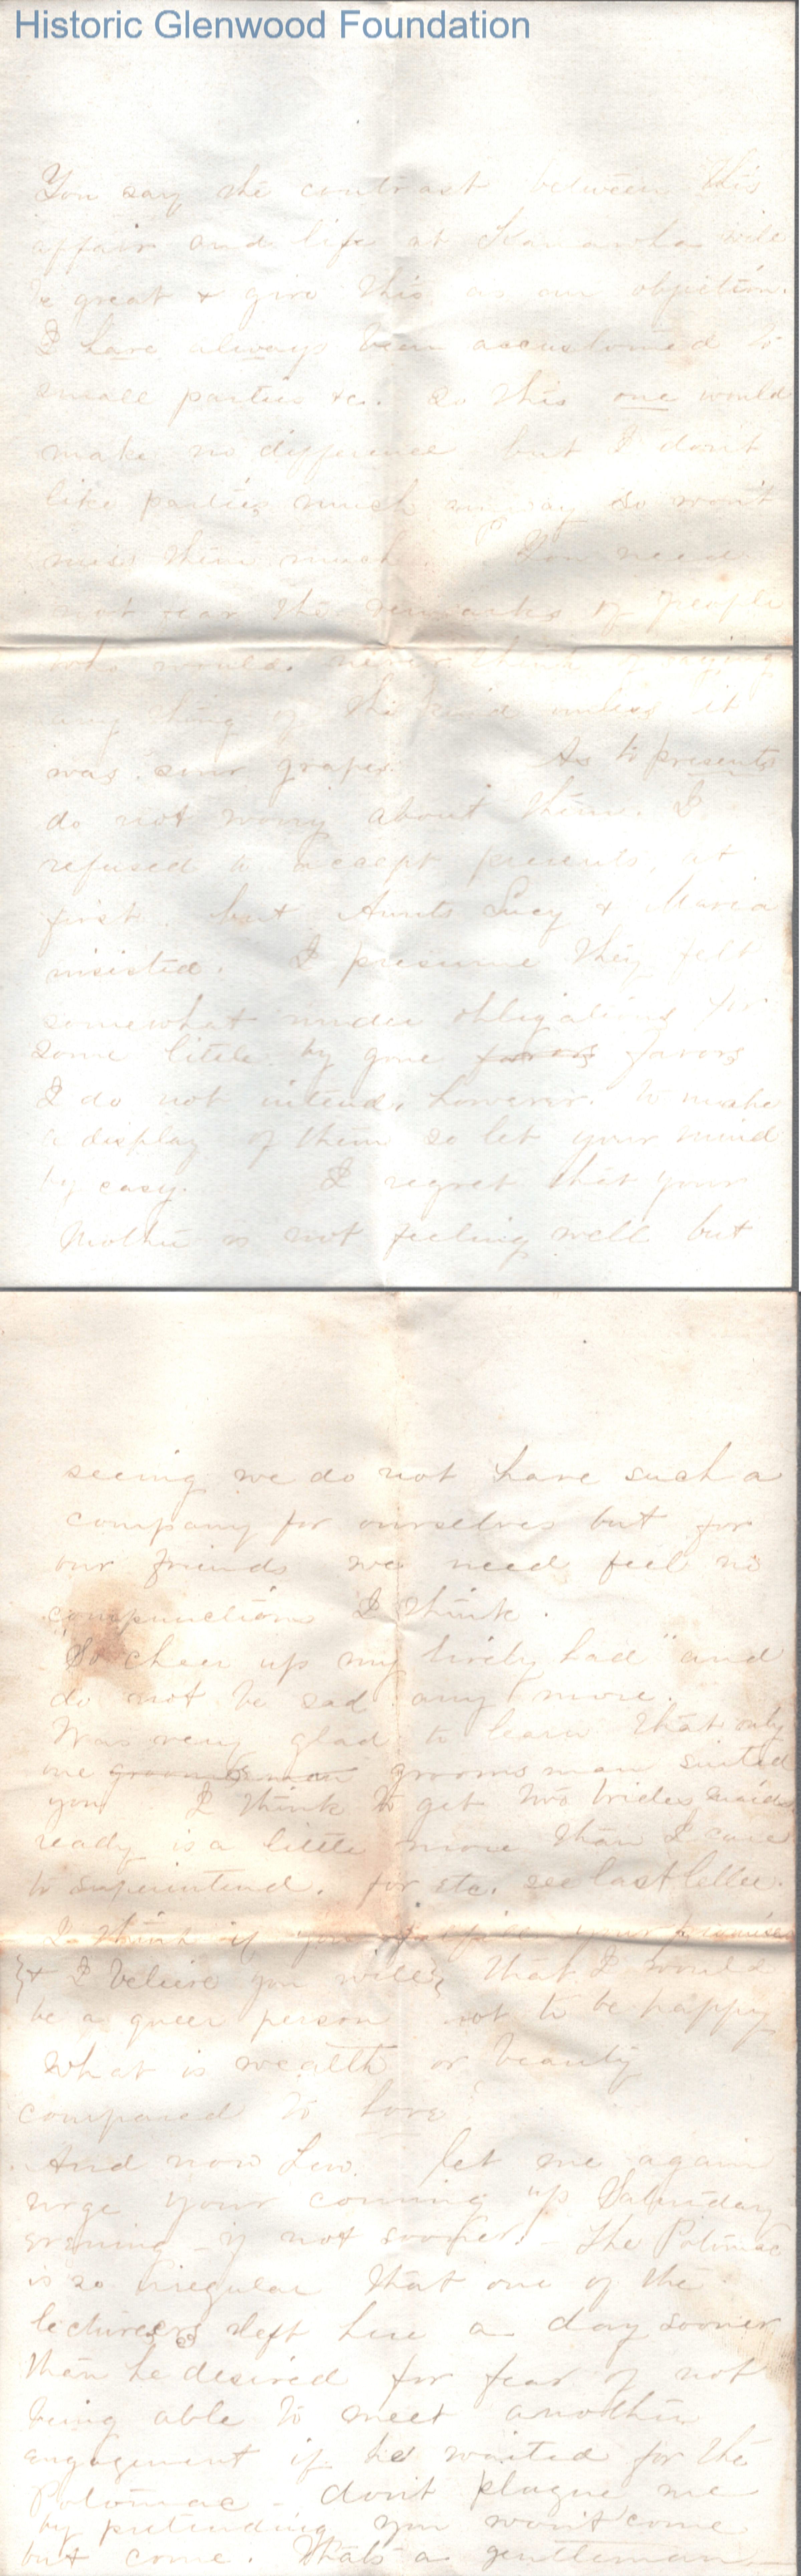 Historic Glenwood Foundation
You say the contrast between this
affair and life at Kanawha will
be great & give this as an objection.
I have always been accustomed to
small parties &c. so this one would
make no difference but I don't
like parties much anyway so won't
miss them much. You need
not fear the remarks of people
who would never think of saying
any thing of the kind unless it
was "sour grapes" As to presents
do not worry about them. I
refused to accept presents, at
first. but Aunts Lucy & Maria
insisted. I presume they felt
somewhat under obligations for
some little by gone favors favors
I do not intend, however. to make
a display of them so let your mind
by easy. I regret that your
Mother is not feeling well but
seeing we do not have such a
company for ourselves but for
our friends we need feel no
compunctions I think.
"So cheer up my lively lad" and
do not be sad any more.
Was very glad to learn that only
one groomsman grooms man suited
you I think to get two brides maids
ready is a little more than I care
to superintend. for etc. see last letter.
I think if you your promises
& I believe you will, that I would
be a queer person not to be happy
what is wealth or beauty
compared to love?
And now Lew. let me again
urge your coming up Saturday
evening - if not sooner. - The Potomac
is so irregular that one of the
lecturers left here a day sooner
than he desired for fear of not
being able to meet another
engagement if he waited for the
Potomac - don't plague me
by pretending you won't come
but come. That's a gentleman